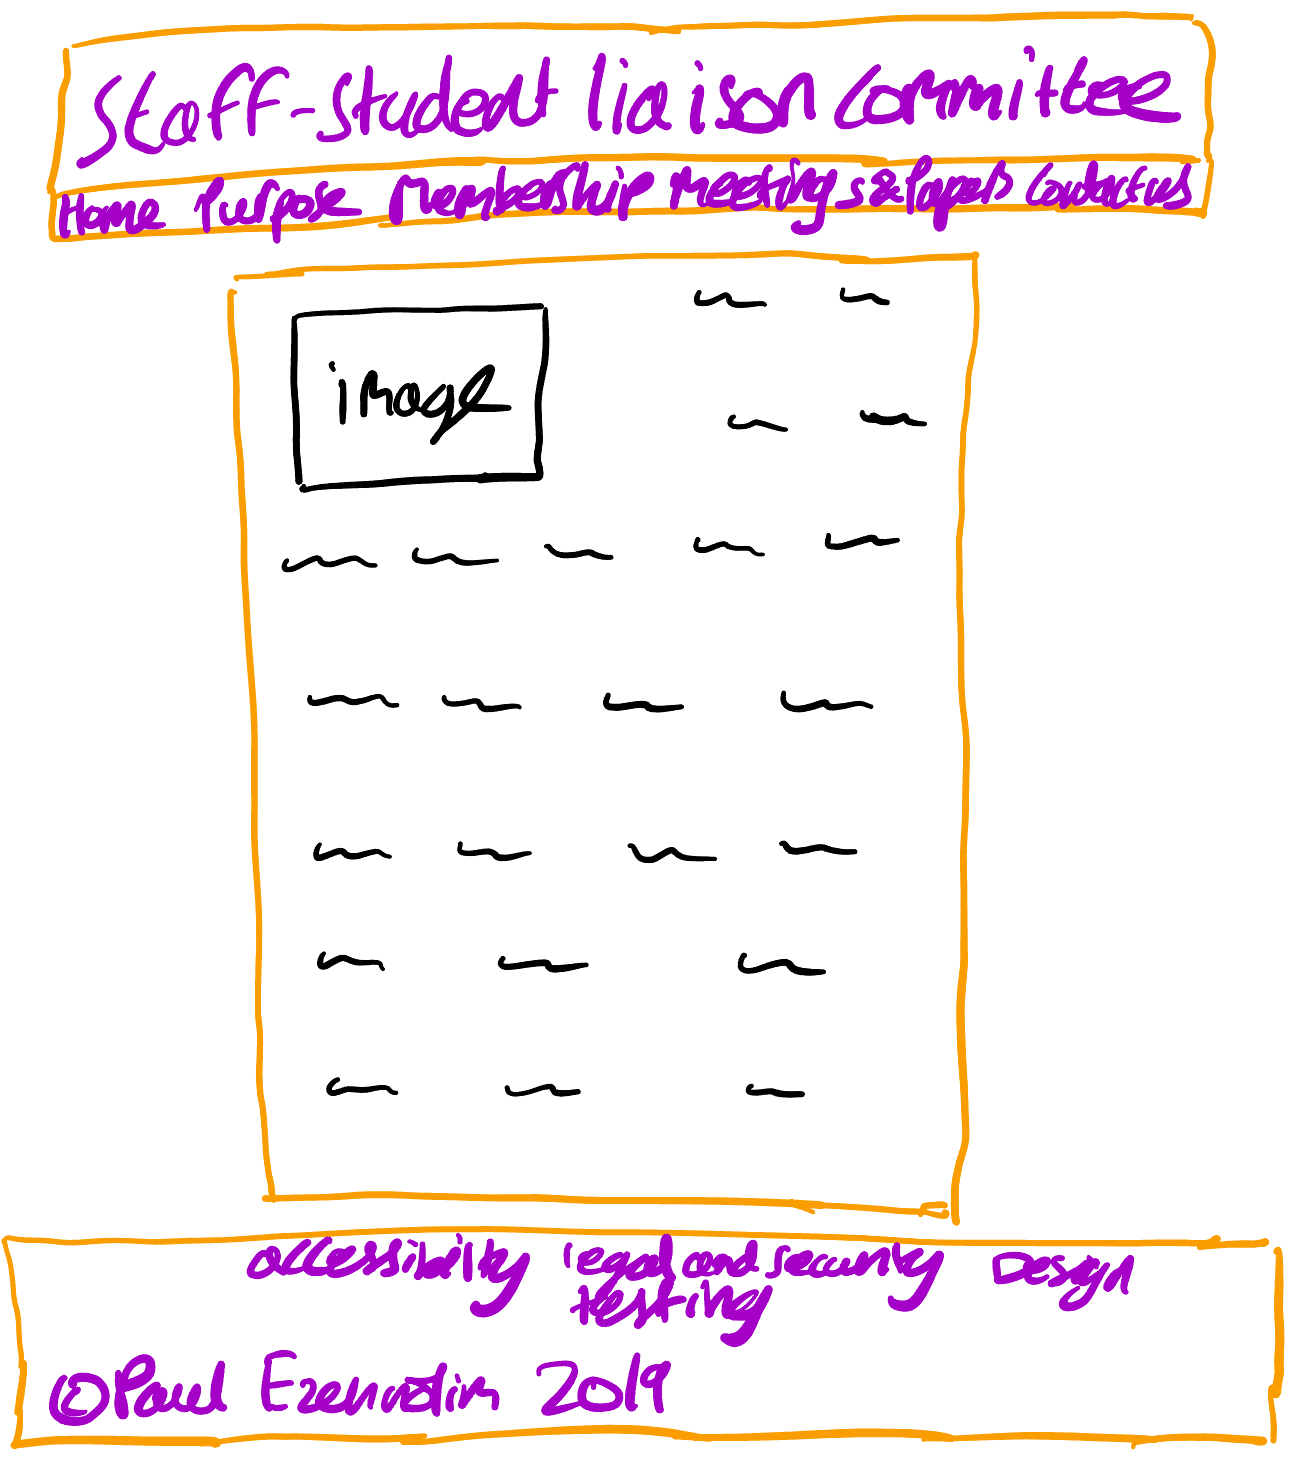 Staff-Student liaison committee
Home Purpose Membership Meetings & Papers Contact us
image
accessibility legal and security Design
testing
© Paul 2019